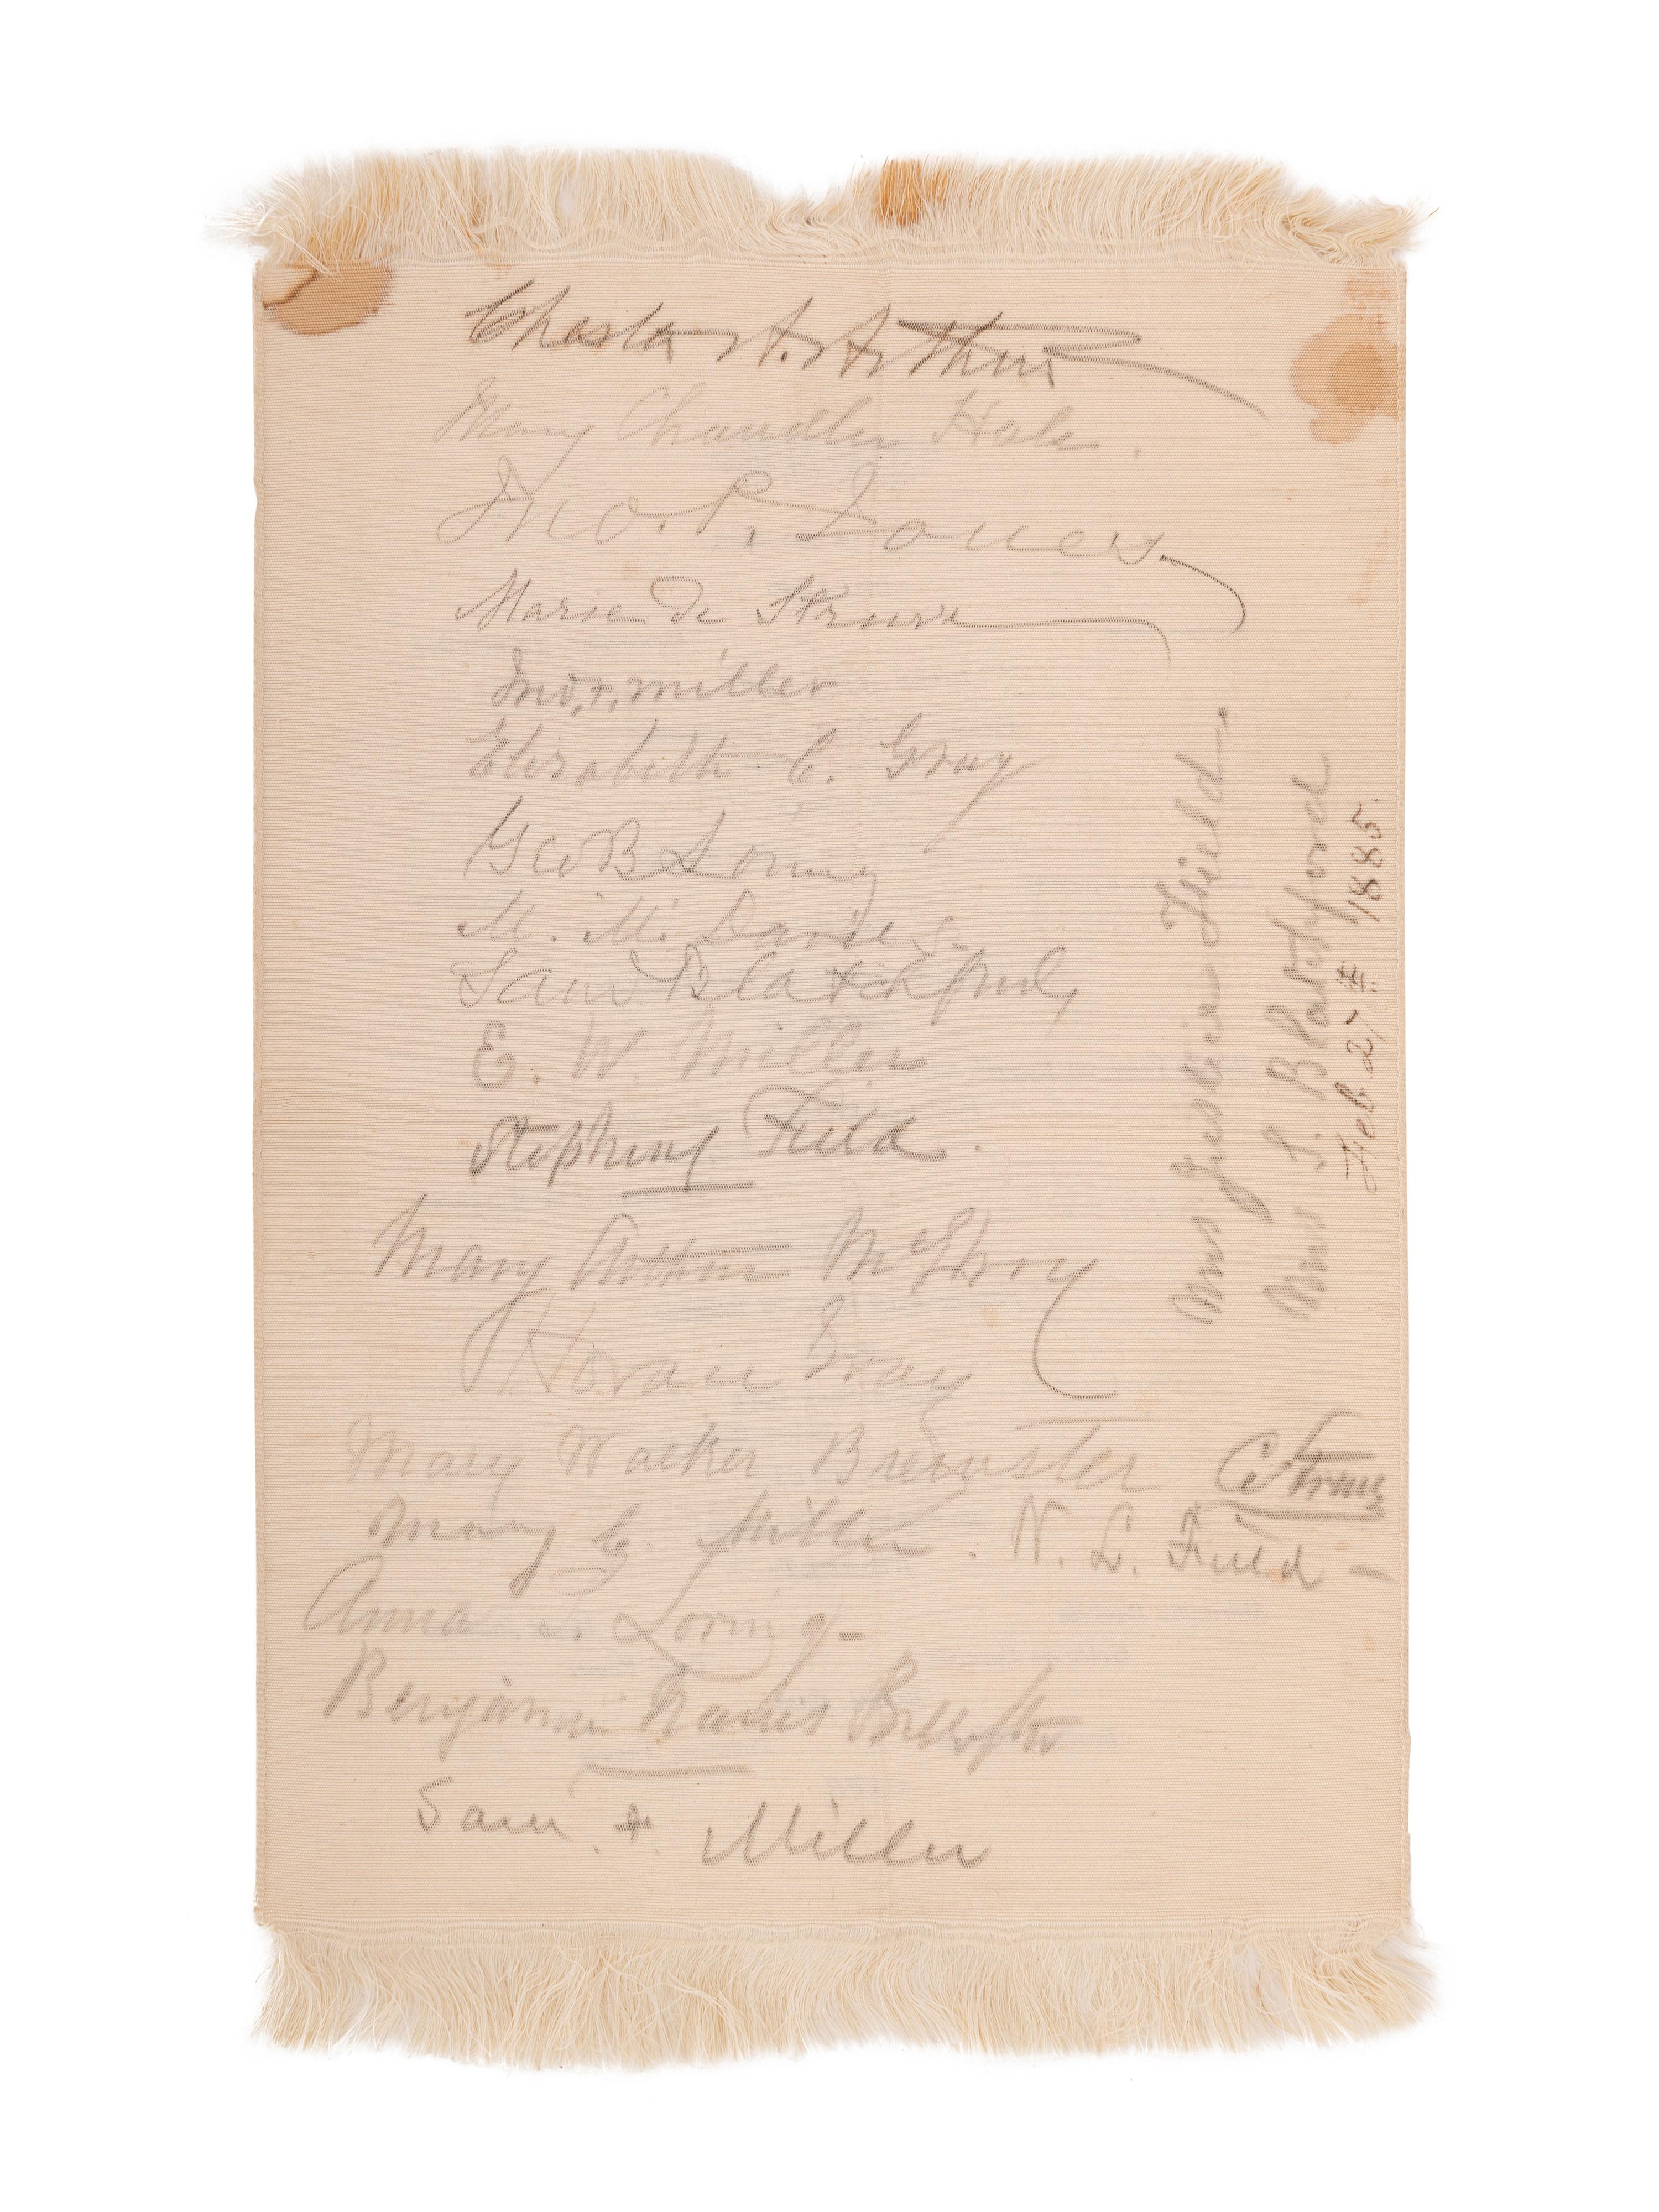 Chester A. Arthur
Mary Chandler Hale.
Jno. P. Jones
Marie de Struve
Jno. F. Miller
Elizabeth C. Gray
Geo B Loring
M. M. Davis
Sam Blatchford,
E. W. Miller
Stephen J Field.
Mary Arthur McElroy
Horace Gray
Mary Walker Brewster
C Struve
Mary C. Miller. N. L. Field -
Anna S. Loring -
Benjamin Harris Brewster
Sam. F. Miller
Mrs Justice Field.
Mrs S. Blatchford
Feb. 27th 1885.